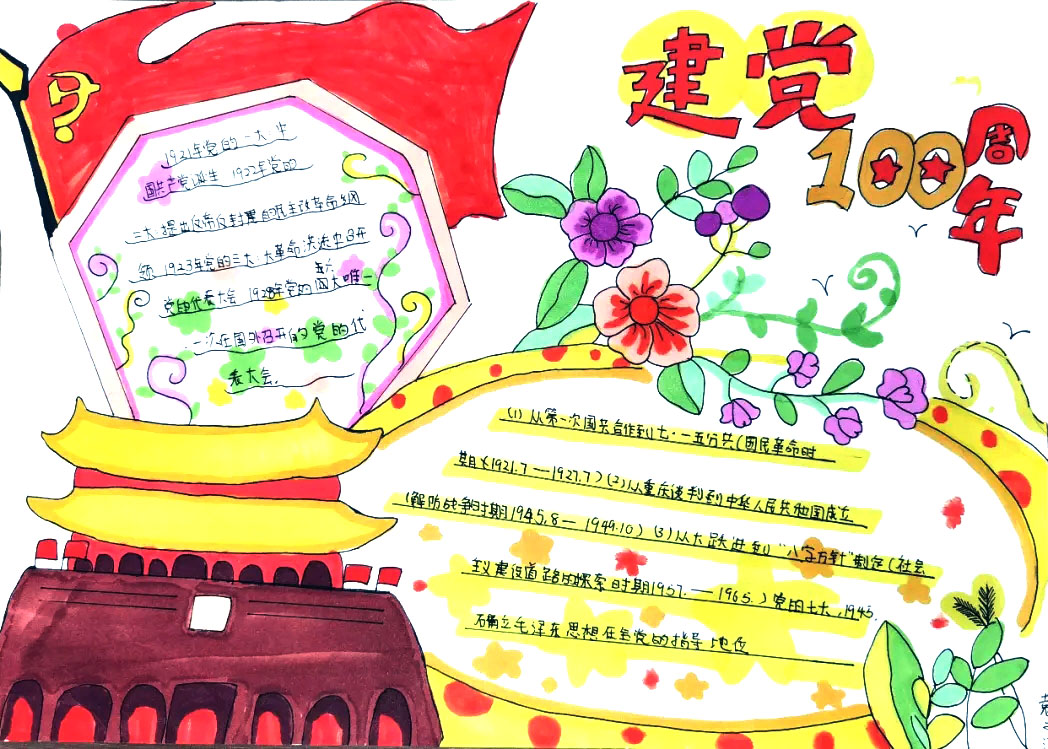 建党
100周年
1921年党的一大中
国共产党诞生 1922年党的
二大·提出反帝反封建的民主改革命纲
领 1923年党的三大·大革命决定中召开
党的代表大会 1928年党的 国大唯一
一次在国外召开的党的代
表大会.
(1)从第一次国共合作到七·一五分共(国民革命时
期)(1921.7—1927.7)(2)从重庆谈判到中华人民共和国成立
(解防战争时期1945.8—1949.10)(3)从大跃进到"八字方针"制定(社会
主义建设道路的探索时期1957.—1965.)党的七大,1945.
确立毛泽东思想在全党的指导地位